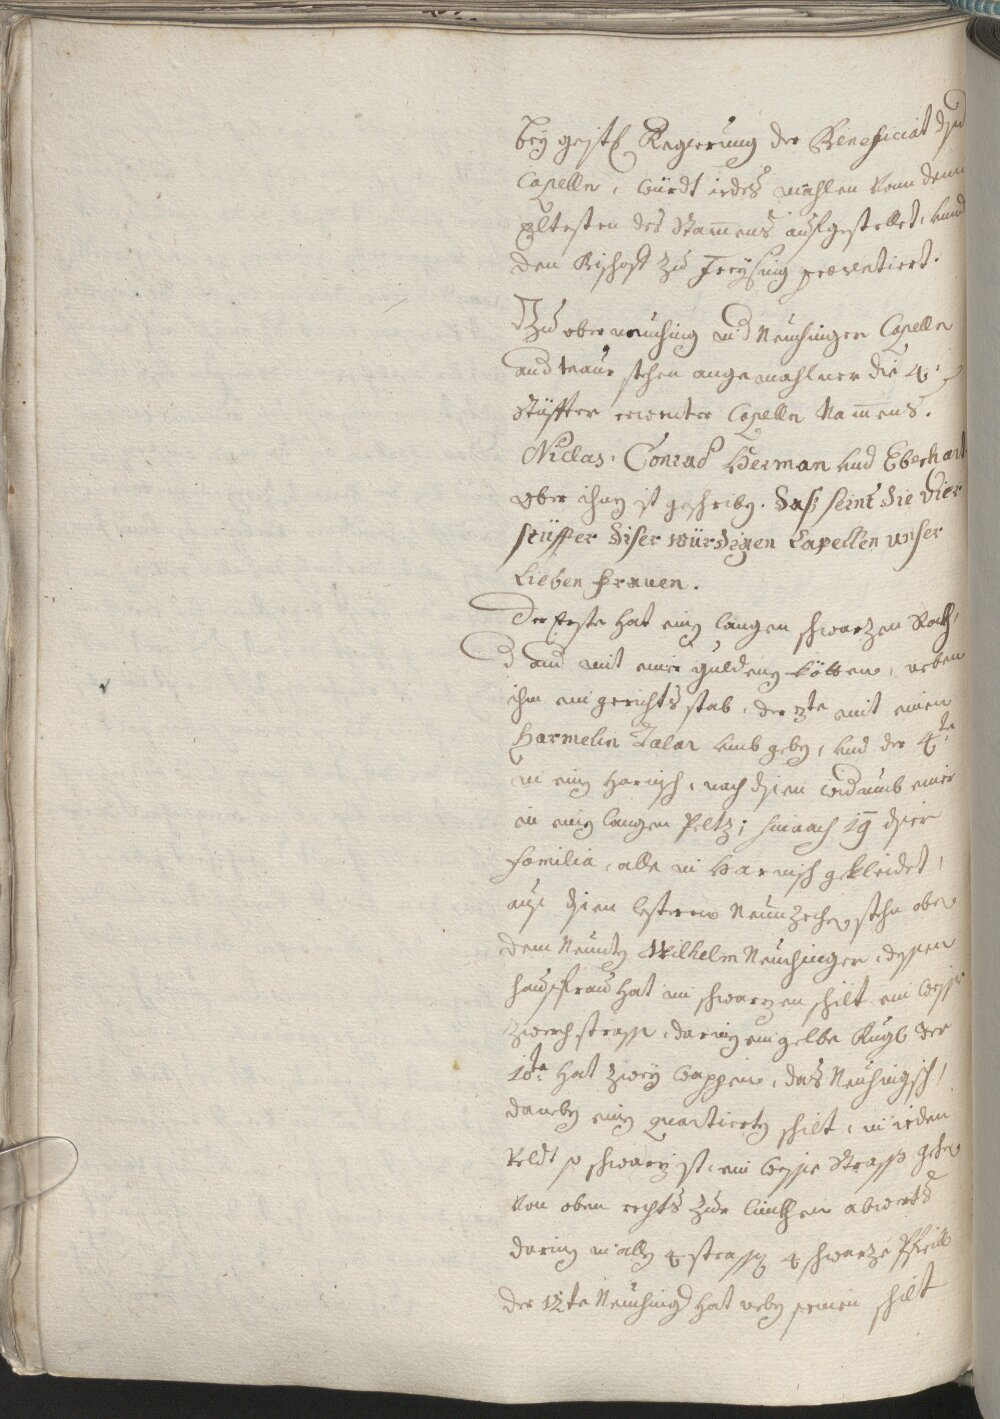 bey geistl Regierung der Beneficiat diser
Capelln, würdt iedes mahlen vom dem
Eltesten des Stammens aufgestellet, und
den Bischoff zu Freysing præsentiert.
Zu oberneuching in d Neuchinger Capelln
and maur stehen angemahlner die 4.
Stüffter ernenter Capelln Nammens.
Niclas, Conrad Herman und Eberhart
ober ihnen ist geschriben. Daß seint die vier
stüffter diser würdigen Capellen unser
Lieben Frauen.
Der Erste hat ein langen schwarzen Rockh,
und mit einer gulden kötten, neben
ihm ein gerichts stab, der 3te mit einen
Harmelin Talar umbgeben, und der 4te
in ein Harnisch, nach disen widerumb einer
in ein langen Peltz; hinach 19 diser
Familia, alle in Harnisch gekleidet,
auß disen lesteren Neunzechen stehn oben
dem Neunten Wilhelm Neuchinger, dessen
haußfrau hat im schwarzen schilt ein weisse
zwerchstrassen, darin ein gelbe Kugl der
10te hat zwey wappen, das Neuchingisch,
daneben ein quartierten schilt, in ieden
Veldt so schwarz ist, ein weisse Strassß gehen
Von oben rechts zur linckhen abwerts
darin in allen 4 strassen 4 schwarze Pfeill
der 12te Neuching hat neben seinen schilt